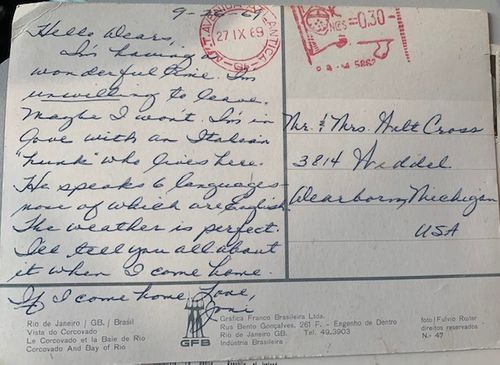 Hello Dears,
I'm having a
wonderful time. I'm
unwilling to leave.
Maybe I won't. I'm in
love with an Italian
"hunk" who lives here.
He speaks 6 languages
none of which are English.
The weather is perfect.
I'll tell you all about
it when I come home.
If I come home, Love,
Joni
27 IX 69
=0,30
Mr. & Mrs. Walt Cross
3814 Weddel
Dearborn, Michigan
USA
Rio de Janeiro / GB. / Brasil
Vista do Corcovado
Le Corcovado et la Baie de Rio
Corcovado And Bay of Rio
GFB
Gráfica Franco Brasileira Ltda.
Rua Bento Gonçalves, 261 F. - Engenho de Dentro
Rio de Janeiro GB. Tel. 49.3903
Indústria Brasileira
direitos reservados
N.- 47